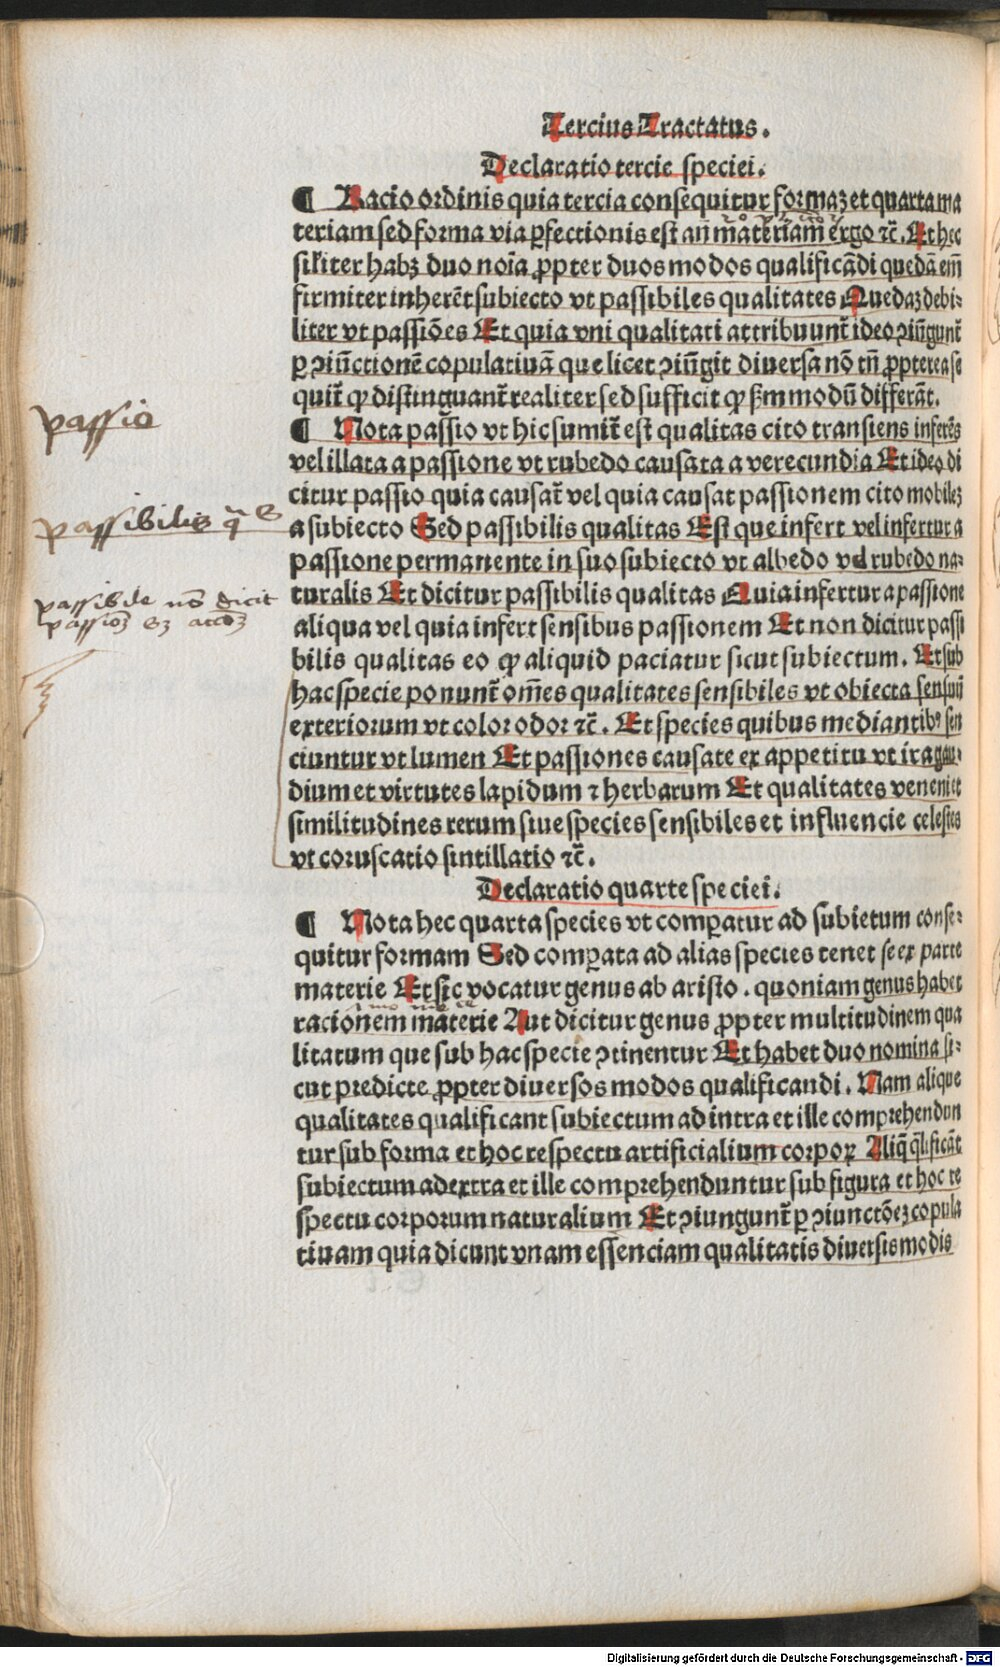 Tercius Tractatus.
Declaratio tercie speciei.
¶ Racio ordinis quia tercia consequitur formaꝫ et quarta ma
teriam sed forma via ꝑfectionis est an̄ materiam ergo ⁊c̄. Et hec
sil'iter habꝫ duo noīa ꝓpter duos modos qualificādi quedā em̄
firmiter inherēt subiecto vt passibiles qualitates Quedaꝫ debi⸗
liter vt passiōes Et quia vni qualitati attribuunt̄ ideo ↄiūgunt̄
ꝑ ↄiūctionē copulatiuā que licet ↄiūgit diuersa nō tn̄ ꝓpterea se
quit̄ ꝙ distinguant̄ realiter sed sufficit ꝙ ßm modū differāt.
¶ Nota passio vt hic sumit̄ est qualitas cito transiens inferēs
vel illata a passione vt rubedo causata a verecundia Et ideo di
citur passio quia causat̄ vel quia causat passionem cito mobileꝫ
a subiecto Sed passibilis qualitas Est que infert vel infertur a
passione permanente in suo subiecto vt albedo vel rubedo na⸗
turalis Et dicitur passibilis qualitas Quia infertur a passione
aliqua vel quia infert sensibus passionem Et non dicitur passi
bilis qualitas eo ꝙ aliquid paciatur sicut subiectum. Et sub
hac specie ponunt̄ om̄es qualitates sensibiles vt obiecta sensuū
exteriorum vt color odor ⁊c̄. Et species quibus mediantibꝰ sen
ciuntur vt lumen Et passiones causate ex appetitu vt ira gau⸗
dium et virtutes lapidum ⁊ herbarum Et qualitates veneni et
similitudines rerum siue species sensibiles et influencie celestes
vt coruscatio sintillatio ⁊c̄.
Declaratio quarte speciei.
¶ Nota hec quarta species vt comꝑatur ad subietum conse⸗
quitur formam Sed comꝑata ad alias species tenet se ex parte
materie Et sic vocatur genus ab aristo. quoniam genus habet
racionem materie Aut dicitur genus ꝓpter multitudinem qua
litatum que sub hac specie ↄtinentur Et habet duo nomina si⸗
cut predicte ꝓpter diuersos modos qualificandi. Nam alique
qualitates qualificant subiectum ad intra et ille comprehendun
tur sub forma et hoc respectu artificialium corpoꝝ Aliq̄ q̄lificāt
subiectum ad extra et ille comprehenduntur sub figura et hoc re
spectu corporum naturalium Et ↄiungunt̄ ꝑ ↄiunctōeꝫ copula
tiuam quia dicunt vnam essenciam qualitatis diuersis modis
passio
passibilis
passibile nō dicit
Digitalisierung gefördert durch die Deutsche Forschungsgemeinschaft - DFG